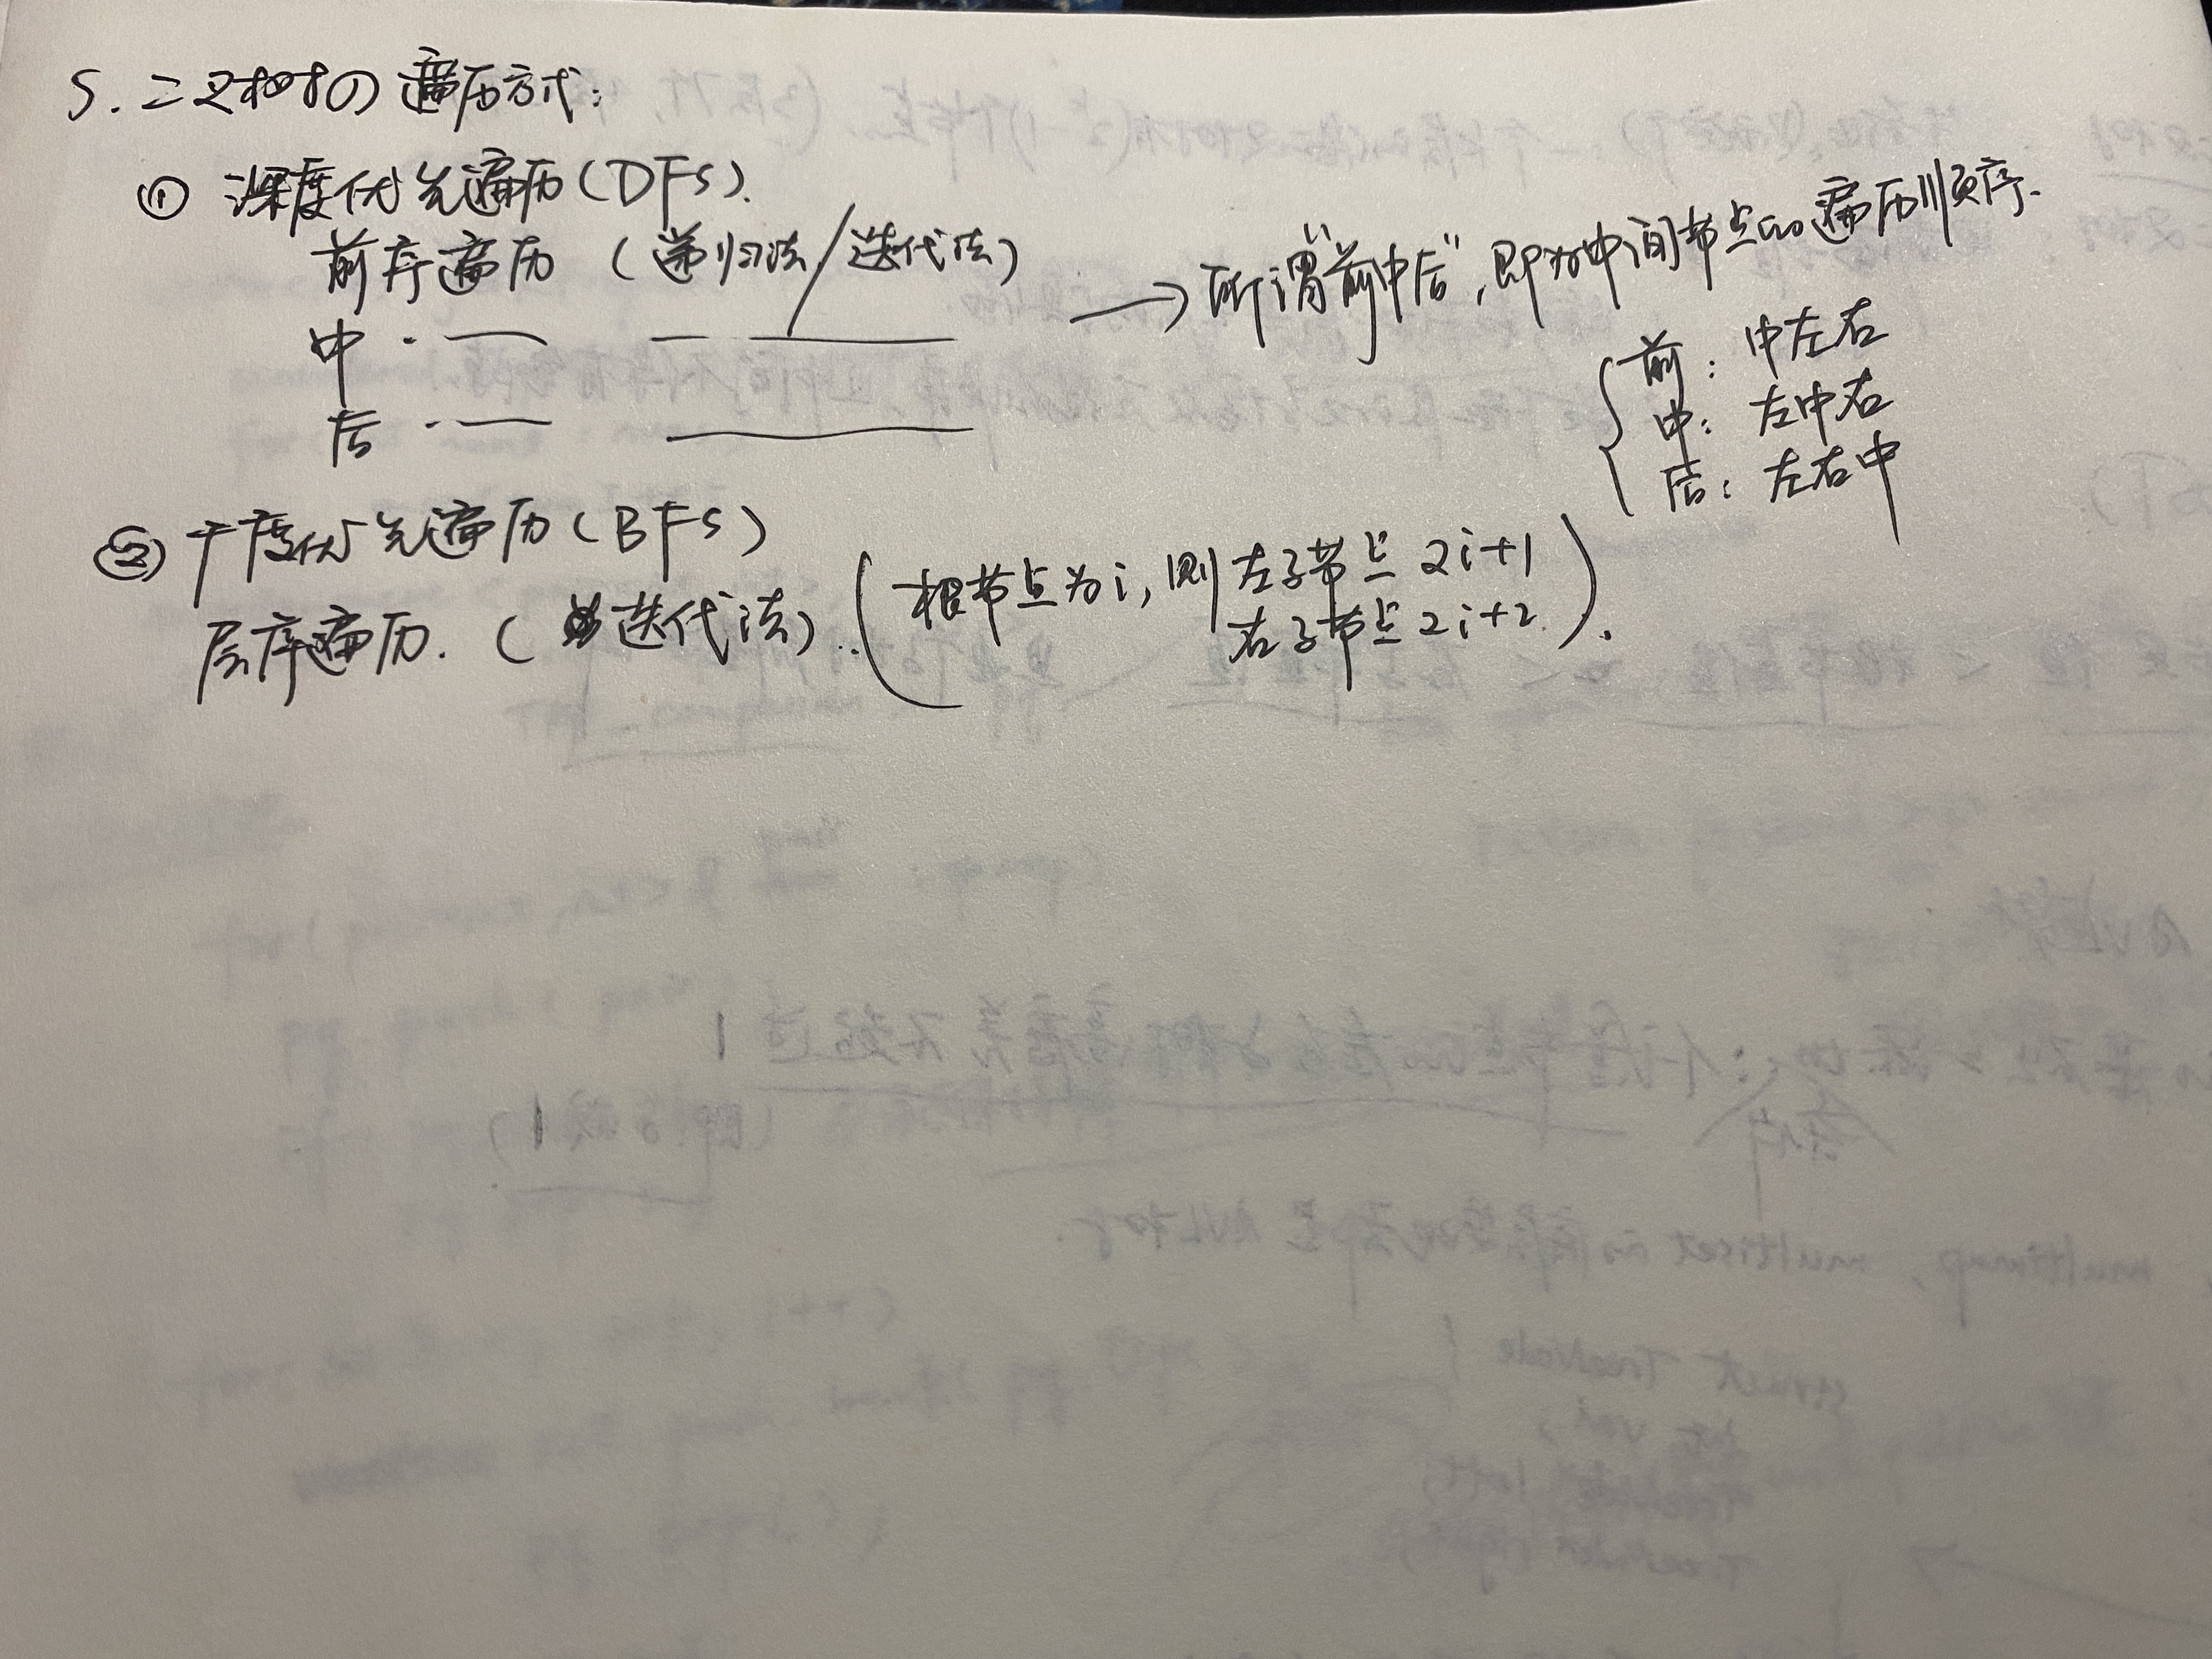 5. 二叉树の遍历方式:
① 深度优先遍历(DFS).
前序遍历 (递归法/迭代法)
中
后
→ 所谓"前中后",即为中间节点的遍历顺序.
前: 中左右
中: 左中右
后: 左右中
② 广度优先遍历(BFS)
层序遍历. (迭代法).
(根节点为i, 则左子节点 2i+1
右子节点 2i+2).